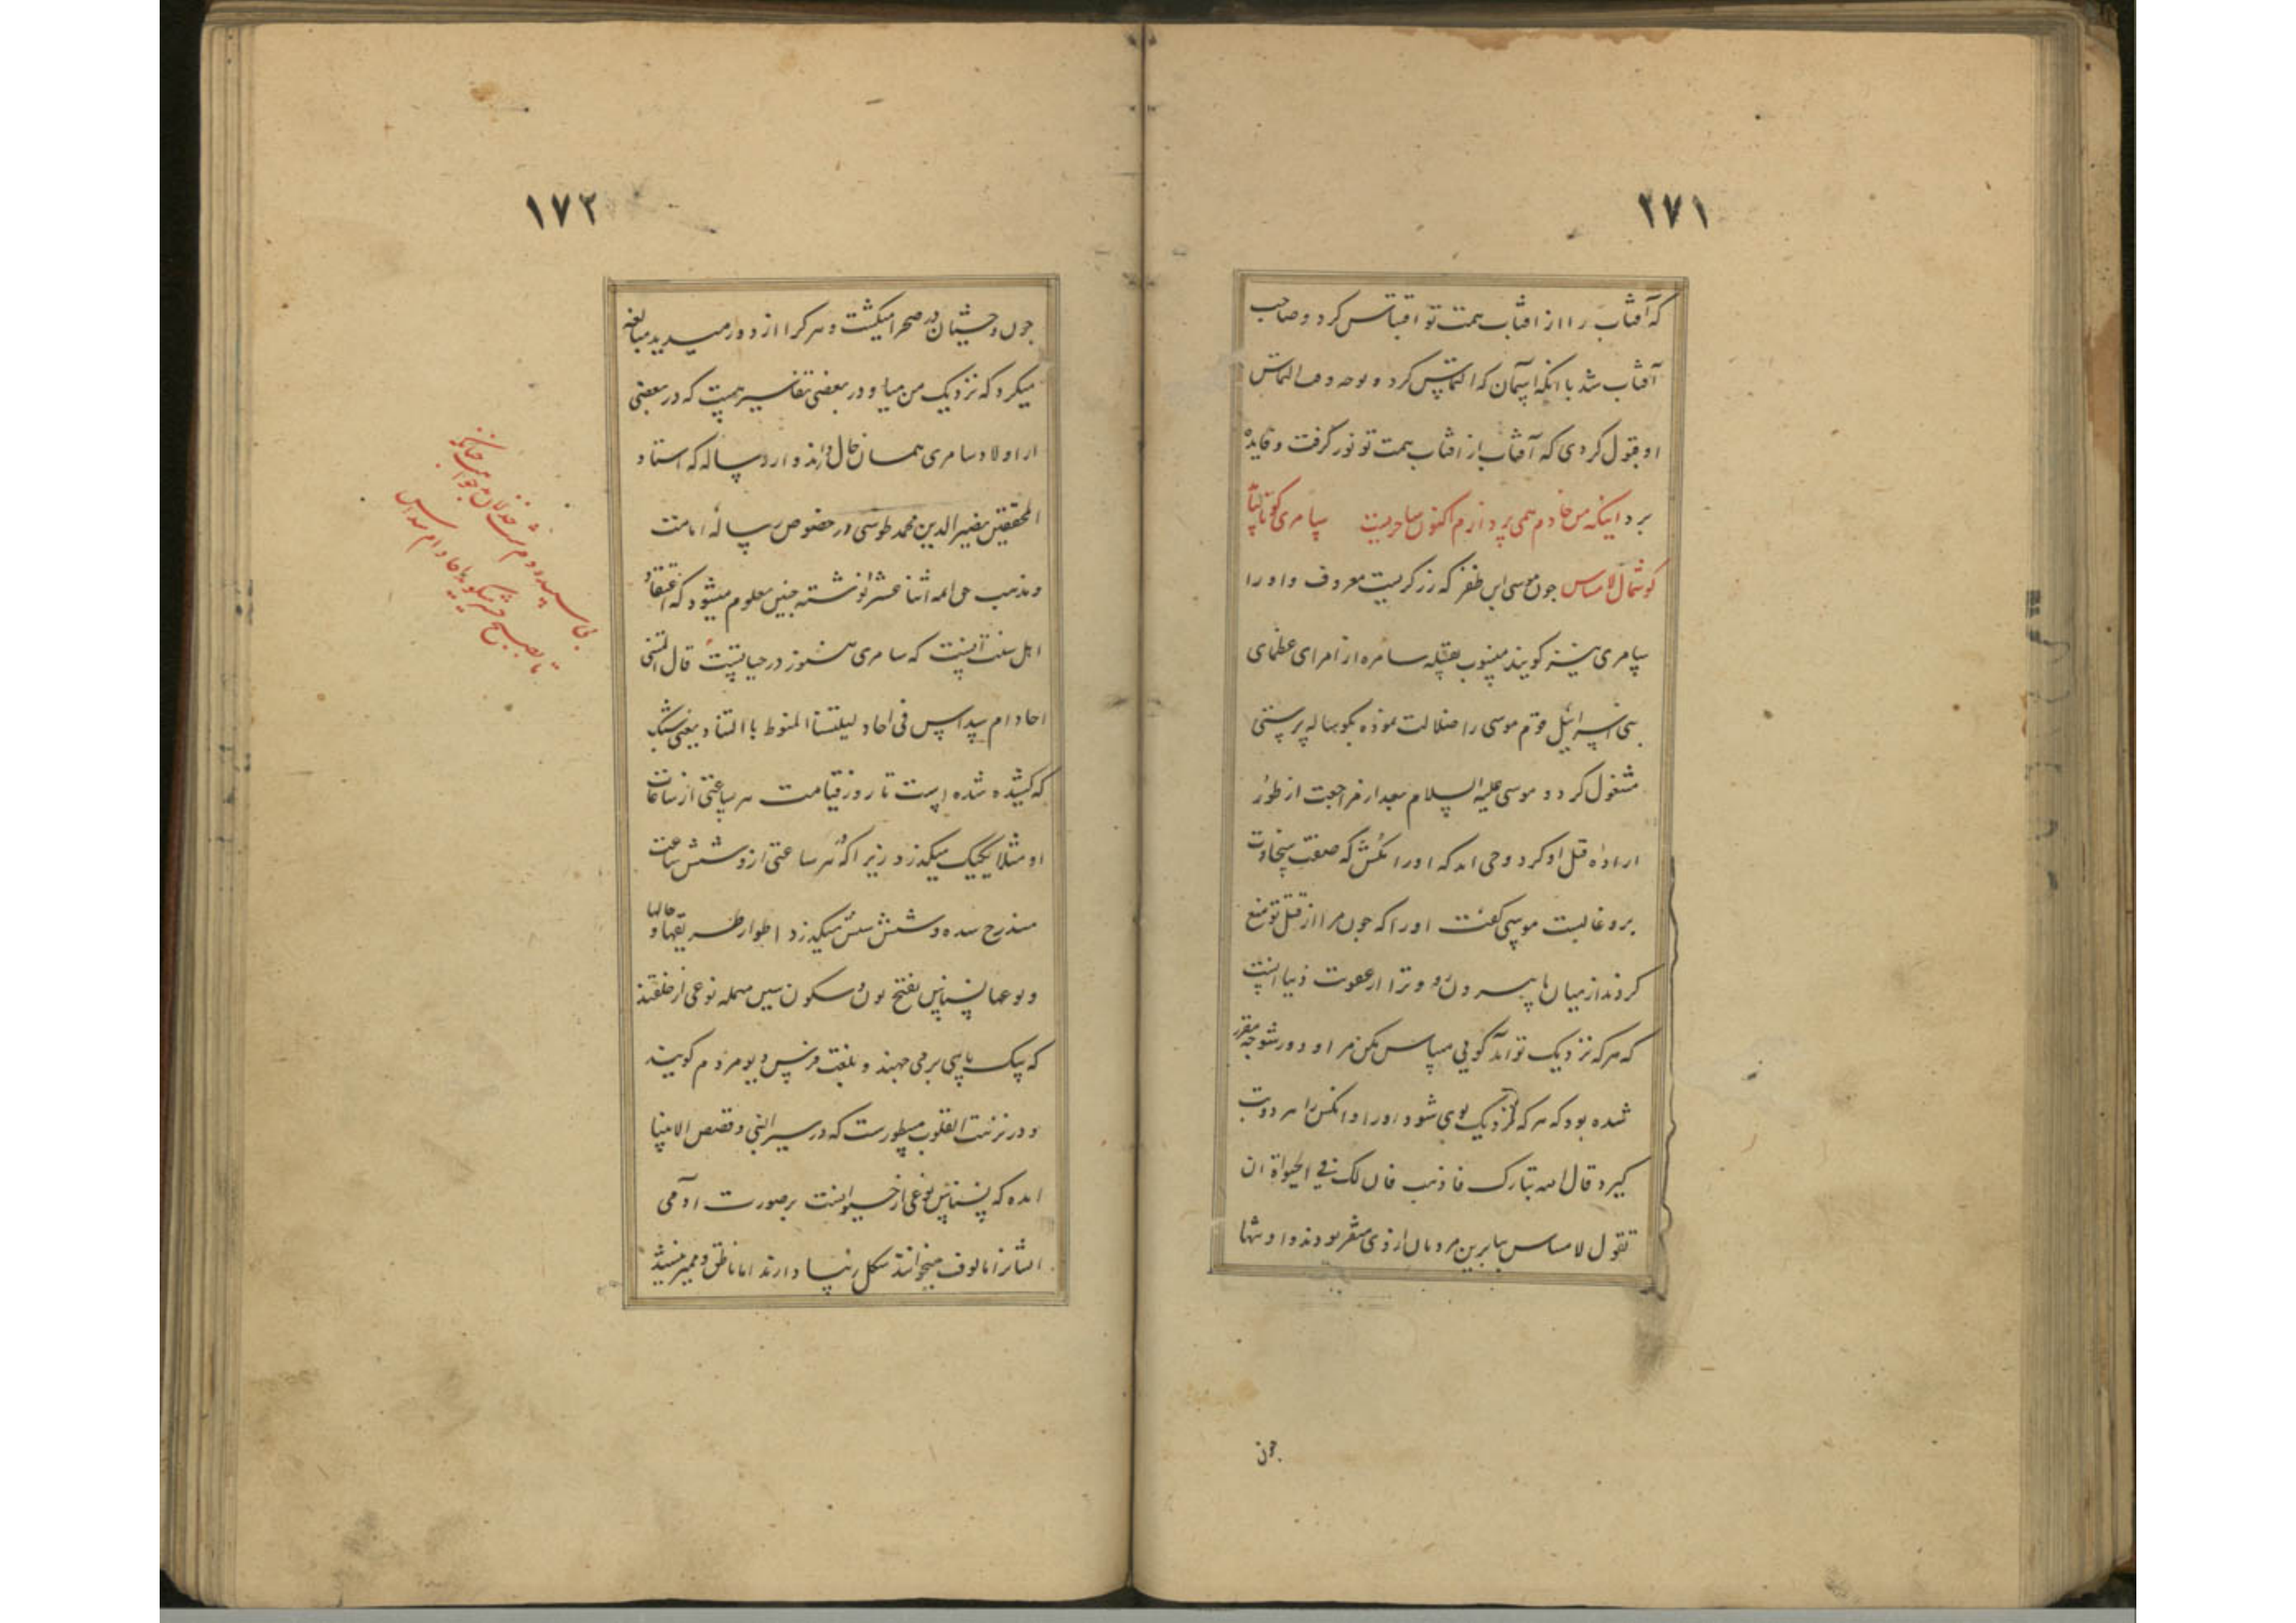 ۲۷۱
که آفتاب را از افتاب همت تو اقتباس کرد و صاحب
آفتاب شد با انکه اسمان که التماس کرد و التماس
او قبول کردی که آفتاب از افتاب همت تو نور گرفت و فایده
برد اینکه من خادم همی پردازم اکنون ساحریست سامری کو تا بیابد
گوشمال لامساس چون موسی ابن ظفر که زرگریست معروف و او را
سامری نیز گویند منسوب بقبیله سامره از امرای عظمای
بنی اسرائیل قوم موسی را ضلالت نموده بگوساله پرستی
مشغول کرد و موسی علیه السلام بعد از مراجعت از طور
اراده قتل او کرد وحی امد که او را مکش که صفت سخاوت
برو غالبست موسی گفت او را که چون مرا از قتل تو منع
کردند از میان ما بیرون رو و ترا از عقوبت دنیا اینست
که هر که نزدیک تو آید گویی مساس مکن مرا و دور شو چه مقرر
شده بود که هر که نزدیک بوی شود او را و انکس را هر دو تب
گیرد قال الله تبارک فاذهب فان لک فی الحیوة ان
تقول لا مساس بنابرین مردمان از وی متنفر بودند و او تنها
چون
۱۷۲
چون وحشیان در صحرا میگشت و هر کرا از دور میدید مبالغه
میکرد که نزدیک من میا و در بعضی تفاسیر هست که در بعضی
از اولاد سامری همان حال دارند و از رساله که استاد
المحققین نصیر الدین محمد طوسی در خصوص رساله امامت
و مذهب حق ائمه اثنا عشر نوشته چنین معلوم میشود که اعتقاد
اهل سنت آنست که سامری هنوز در حیاتست قال المتنبی
احاد ام سداس فی احاد لییلتنا المنوط باالتناد یعنی شب
که کشیده شده است تا روز قیامت هر ساعتی از ساعات
او مثلا یکیک میگذرد زیرا که هر ساعتی ازو شش ساعت
مندرج شده و شش شش میگذرد اطوار طریقها و حالها
و نوعها نسناس بفتح نون و سکون سین مهمله نوعی از خلقند
که بیک پای بر می جهند و بلغت فرس دیو مردم گویند
و در نزهت القلوب مسطورست که در سیر النبی و قصص الانبیا
امده که نسناس نوعی از حیوانست بر صورت ادمی
میخوانند شکل دارند اما ناطق و ممیز نیستند